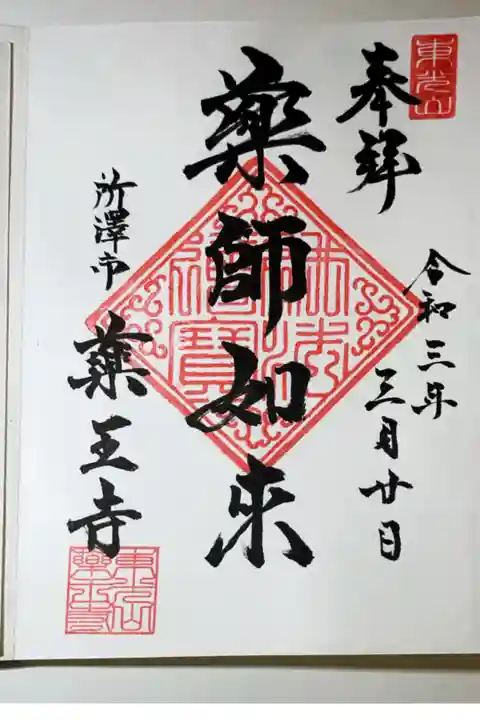 東光山
奉拝
令和三年
三月廿日
藥師如来
佛法僧寳
所澤市
薬王寺
東光山
藥王寺